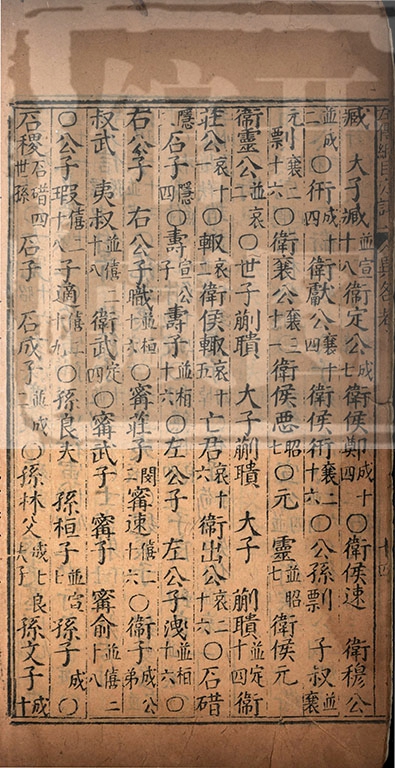 異名考 十四
臧 大子臧並宣十八衛定公成七衛侯鄭成十四○衛侯速 衛穆公
並成二○衎成十四衛獻公襄十四衛侯衎襄二十六○公孫剽 子叔並襄
元剽襄二十六○衛襄公襄三十一衛侯惡昭七○元 靈並昭七 衛侯元
衛靈公並哀二○世子蒯聵 大子蒯聵 大子 蒯聵並定十四衛
莊公哀十一○輒哀十衛侯輒哀十五亡君哀十六衛出公哀二十六○石碏
隱四石子隱四○壽子宣公壽子並桓十六○左公子 左公子洩並桓十六○
右公子 右公子職並桓十六○甯莊子閔二甯速僖二十六○衛子成公弟
叔武 夷叔並僖二十八衛武定四○甯武子 甯子 甯俞並僖二十八
○公子瑕僖二十八子適僖二十九○孫良夫 孫桓子並宣七孫子成○
石稷石碏四世孫石子 石成子並成二○孫林父成七良夫子孫文子成十